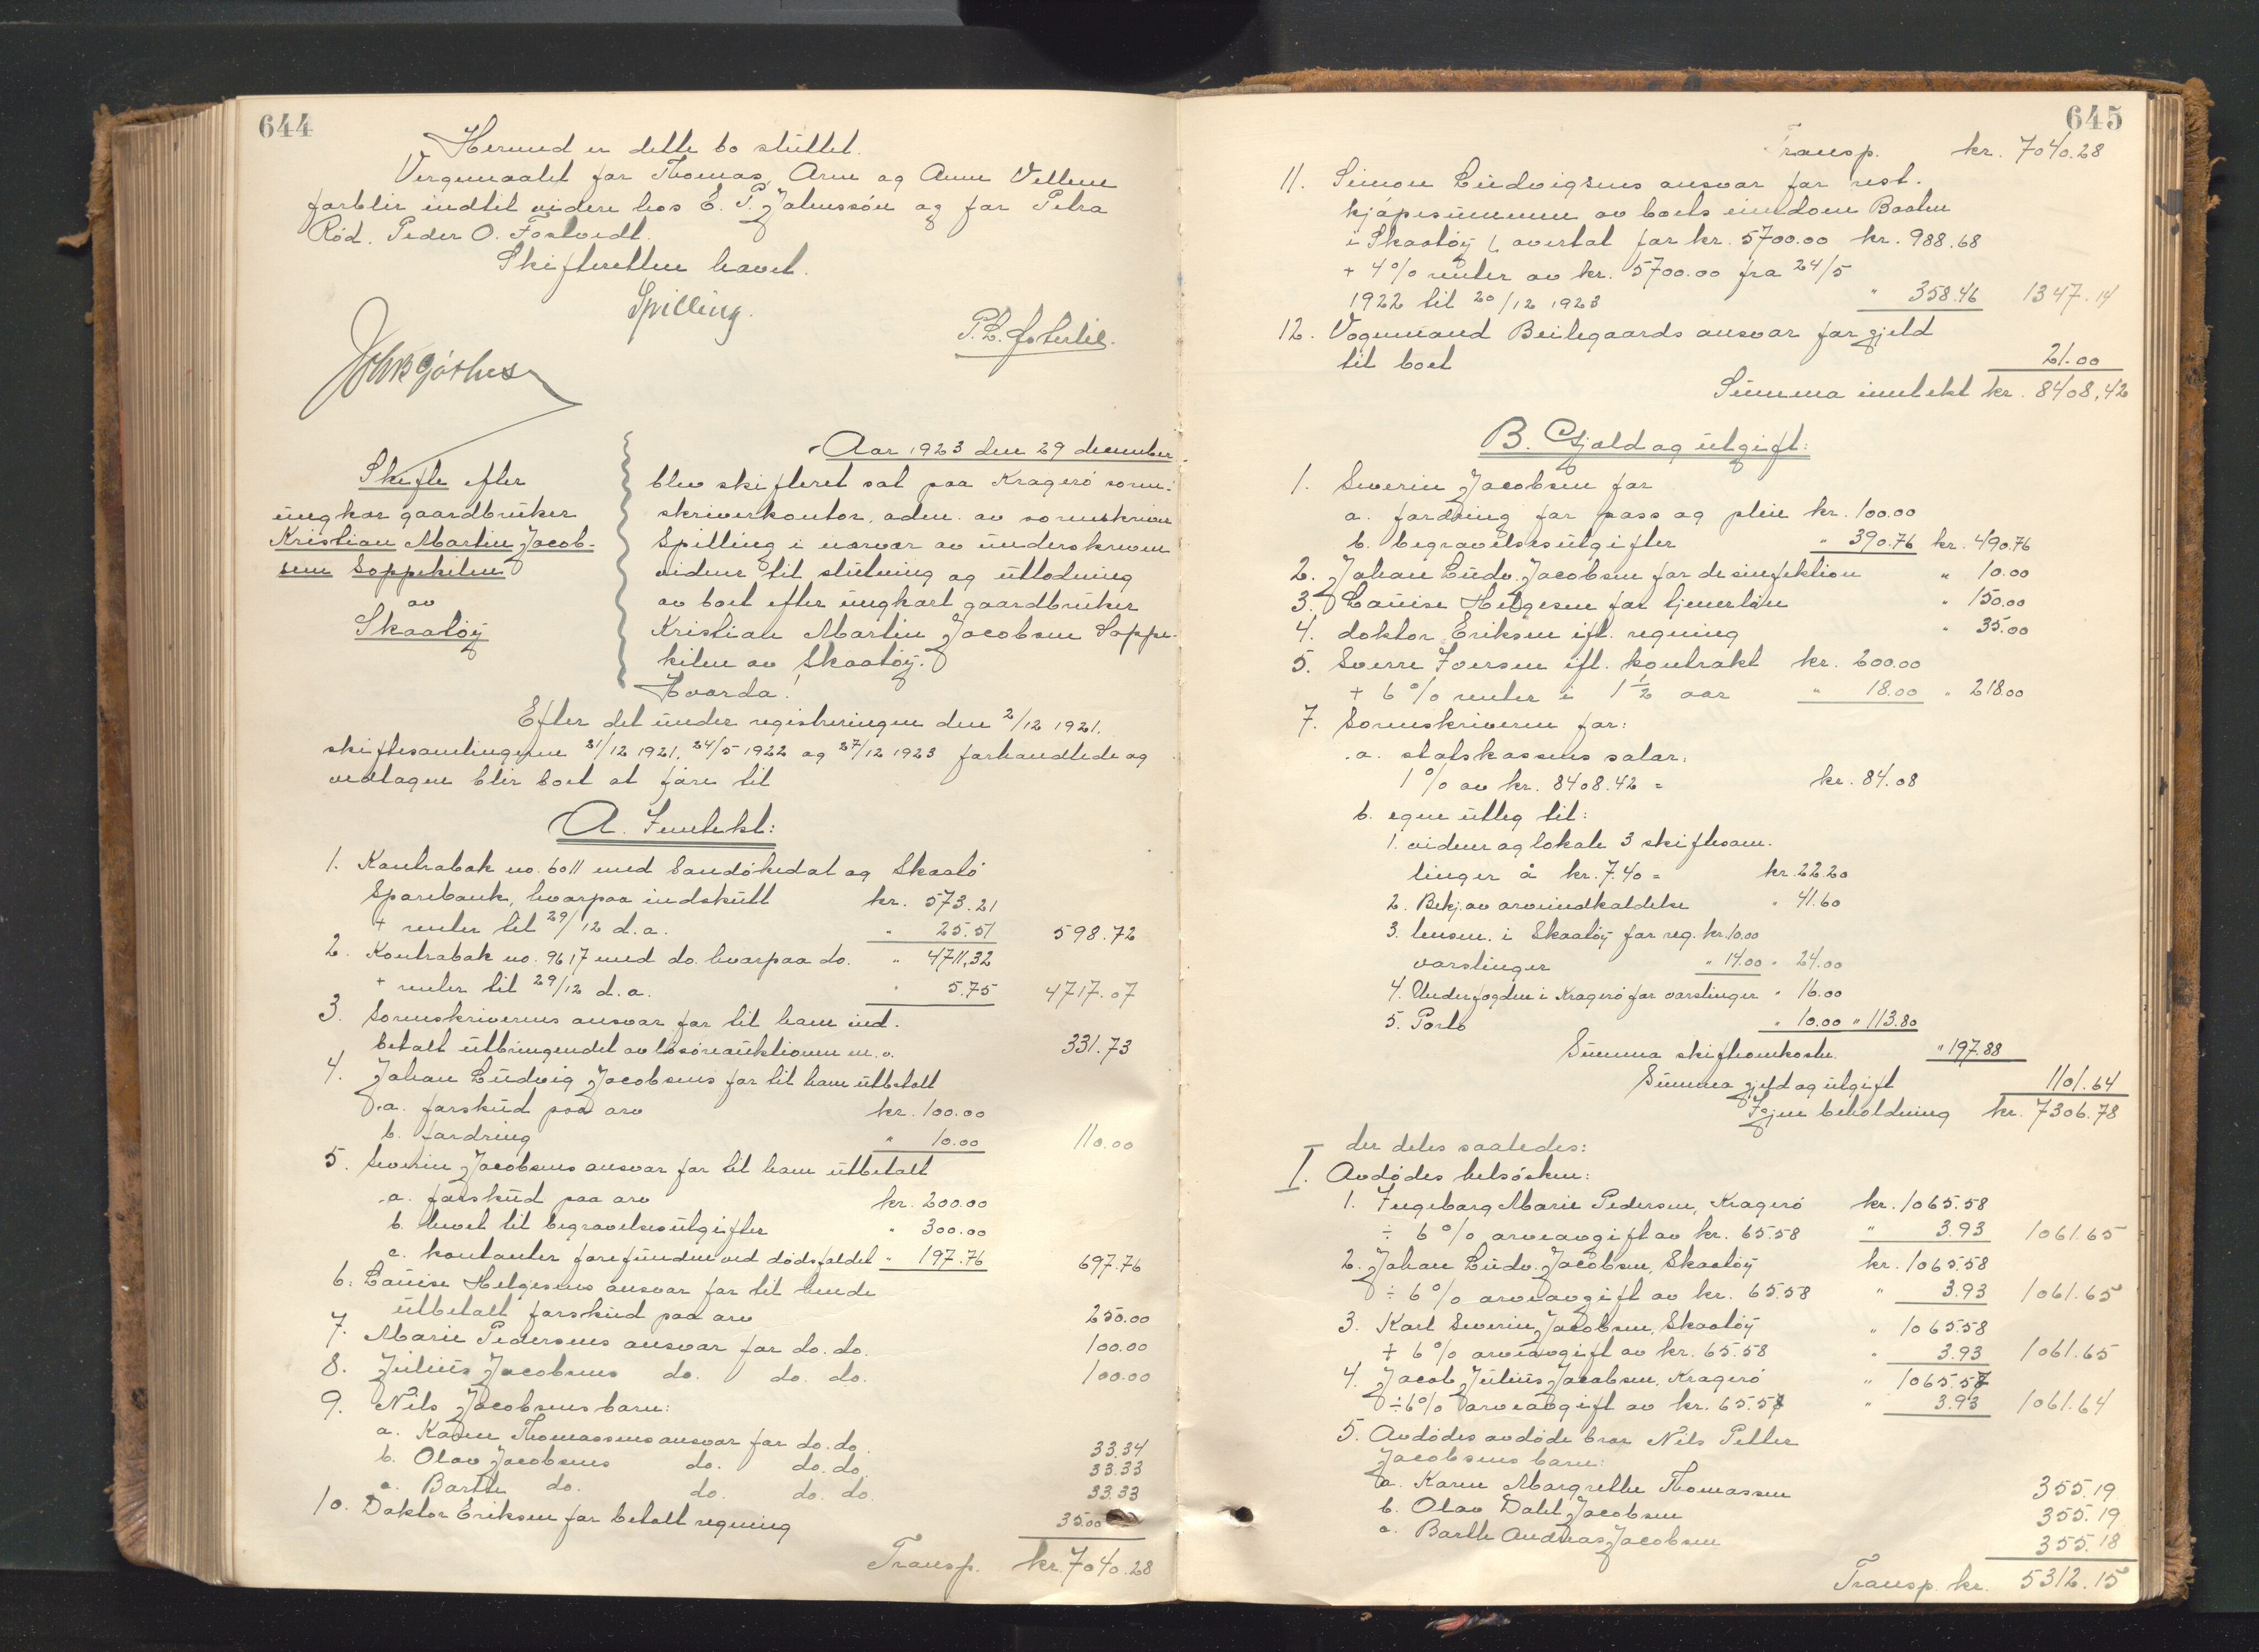 644
Hermed er dette bo sluttet.
Vergemaalet for Thomas, Arne og Anne Vellene
forblir indtil videre hos E. P. Johnssön og for Petra
Röd. Peder O. Fostvedt.
Skifteretten hævet.
Spilling.
Skifte efter
ungkar gaardbruker
Kristian Martin Jacob-
sen Soppekilen
av
Skaatöy
Aar 1923 den 29 december
blev skifteret sat paa Kragerö soren-
skriverkontor, adm. av sorenskriver
Spilling i nærvær av underskrevne
vidner til slutning og utlodning
av boet efter ungkarl gaardbruker
Kristian Martin Jacobsen Soppe-
kilen av Skaatöy.
Hvorda!
Efter det under registreringen den 2/12 1921.
skiftesamlingerne 31/12 1921, 24/5 1922 og 27/12 1923 forhandlede og
vedtagne blir boet at före til
A. Inntekt:
1. Kontrabok no. 6011 med Sandökedal og Skaatö
Sparebank, hvorpaa indskutt kr. 573.21
+ renter til 29/12 d.a. " 25.51 598.72
2. Kontrabok no. 9617 med do. hvorpaa do. " 4711,32
+ renter til 29/12 d.a. " 5.75 4717.07
3. Sorenskriverens ansvar for til ham ind-
betalt utbringendet av lösöreauktionen m.v. 331.73
4. Johan Ludvig Jacobsens for til ham utbetalt
a. forskud paa arv kr. 100.00
b. fordring " 10.00 110.00
5. Severin Jacobsens ansvar for til ham utbetalt
a. forskud paa arv kr. 200.00
b. hævet til begravelsesutgifter " 300.00
c. kontanter forefundne ved dödsfaldet " 197.76 697.76
6. Louise Helgesens ansvar for til hende
utbetalt forskud paa arv 250.00
7. Marie Pedersens ansvar for do. do. 100.00
8. Julius Jacobsens do. do. do. 100.00
9. Nils Jacobsens barn:
a. Karen Thomassens ansvar for do. do. 33.34
b. Olav Jacobsens do. do. do. 33.33
c. Barthe do. do. do. do. 33.33
10. Doktor Eriksen for betalt regning 35.00
Transp. kr. 7040.28
645
Transp. kr. 7040.28
11. Simon Ludvigsens ansvar for rest-
kjöpesummen av boets eiendom Baaten
i Skaatöy, overtat for kr. 5700.00 kr. 988.68
+ 4% renter av kr. 5700.00 fra 24/5
1922 til 20/12 1923 " 358.46 1347.14
12. Vognmand Beilegaards ansvar for gjeld
til boet 21.00
Summa inntekt kr. 8408,42
B. Gjæld og utgift:
1. Severin Jacobsen for
a. fordring for pass og pleie kr. 100.00
b. begravelsesutgifter " 390.76 kr. 490.76
2. Johan Ludv. Jacobsen for desinfektion " 10.00
3. Louise Helgesen for tjenerlön " 150.00
4. doktor Eriksen ifl. regning " 35.00
5. Sverre Iversen ifl. kontrakt kr. 200.00
+ 6% renter i 1 1/2 aar " 18.00 " 218.00
7. Sorenskriveren for:
a. statskassens salær,
1% av kr. 8408.42 = kr. 84.08
b. egne utlæg til:
1. vidner og lokale 3 skiftesam-
linger à kr. 7.40 = kr. 22.20
2. Bekj. av arveindkaldelse " 41.60
3. lensm. i Skaatöy for reg. kr. 10.00
varslinger " 14.00 " 24.00
4. Underfogden i Kragerö for varslinger " 16.00
5. Porto " 10.00 " 113.80
Summa skifteomkostn. " 197.88
Summa gjeld og utgift 1101.64
Igjen beholdning kr. 7306.78
der deles saaledes:
I. Avdödes helsösken:
1. Ingeborg Marie Pedersen, Kragerö kr. 1065.58
÷ 6% arveavgift av kr. 65.58 " 3.93 1061.65
2. Johan Ludv. Jacobsen, Skaatöy kr. 1065.58
÷ 6% arveavgift av kr. 65.58 " 3.93 1061.65
3. Karl Severin Jacobsen, Skaatöy " 1065.58
÷ 6% arveavgift av kr. 65.58 " 3.93 1061.65
4. Jacob Julius Jacobsen, Kragerö " 1065.57
÷ 6% arveavgift av kr. 65.57 " 3.93 1061.64
5. Avdödes avdöde bror Nils Petter
Jacobsens barn:
a. Karen Margrethe Thomassen 355.19
b. Olav Dahl Jacobsen 355.19
c. Barthe Andreas Jacobsen 355.18
Transp. kr. 5312.15